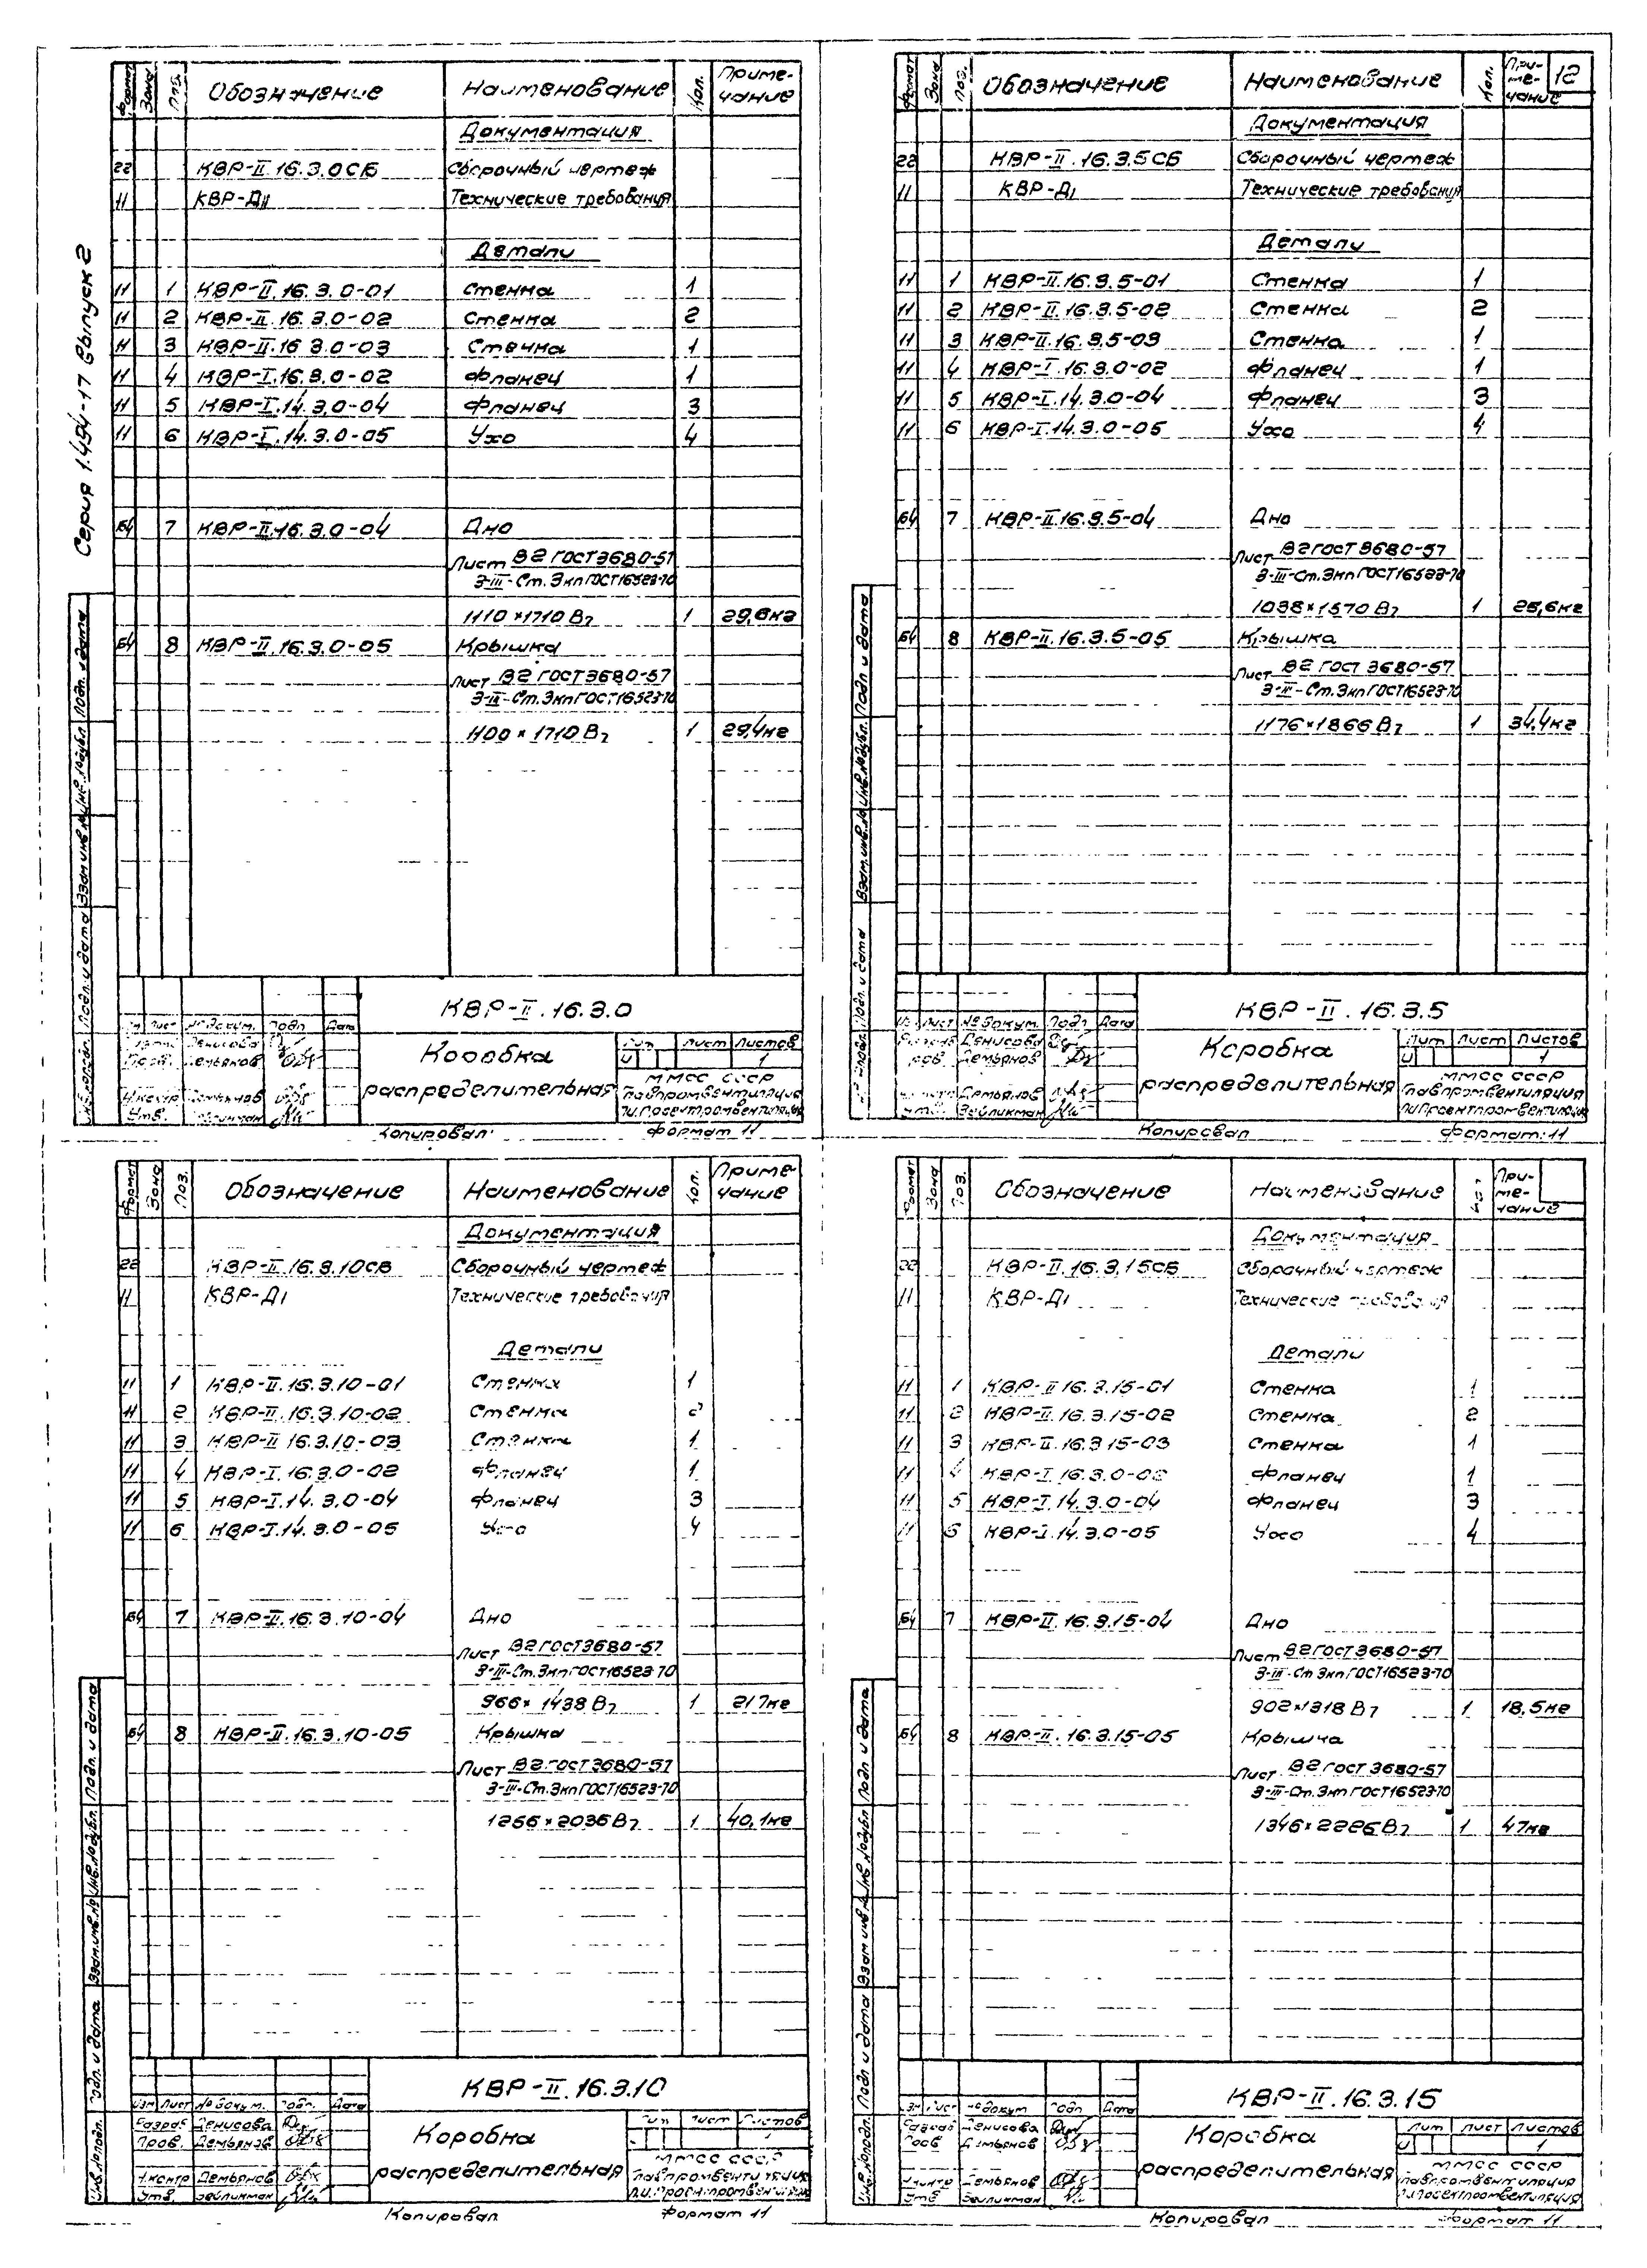 Серия 1.494-17 выпуск 2
12
Формат Зона Поз. Обозначение Наименование Кол. Приме-
чание
Документация
22 КВР-II.16.3.0СБ Сборочный чертеж
11 КВР-Д1 Технические требования
Детали
11 1 КВР-II.16.3.0-01 Стенка 1
11 2 КВР-II.16.3.0-02 Стенка 2
11 3 КВР-II.16.3.0-03 Стенка 1
11 4 КВР-I.16.3.0-02 Фланец 1
11 5 КВР-I.14.3.0-04 Фланец 3
11 6 КВР-I.14.3.0-05 Ухо 4
Б4 7 КВР-II.16.3.0-04 Дно
Лист В2 ГОСТ 3680-57
3-III-Ст.3кп ГОСТ 16523-70
1110×1710 В7 1 29,6кг
Б4 8 КВР-II.16.3.0-05 Крышка
Лист В2 ГОСТ 3680-57
3-III-Ст.3кп ГОСТ 16523-70
1100×1710 В7 1 29,4кг
КВР-II.16.3.0
Изм Лист № докум. Подп. Дата
Денисова
Пров. Демьянов
Н.контр Демьянов
Утв. Зейликман
Коробка
распределительная
Лит Лист Листов
И 1
ММСС СССР
Главпромвентиляция
ПИ Проектпромвентиляция
Копировал Формат 11
Инв.№подл. Подп. и дата Взам.инв.№ Инв.№дубл. Подп. и дата
Формат Зона Поз. Обозначение Наименование Кол. При-
ме-
чание
Документация
22 КВР-II.16.3.5СБ Сборочный чертеж
11 КВР-Д1 Технические требования
Детали
11 1 КВР-II.16.3.5-01 Стенка 1
11 2 КВР-II.16.3.5-02 Стенка 2
11 3 КВР-II.16.3.5-03 Стенка 1
11 4 КВР-I.16.3.0-02 Фланец 1
11 5 КВР-I.14.3.0-04 Фланец 3
11 6 КВР-I.14.3.0-05 Ухо 4
Б4 7 КВР-II.16.3.5-04 Дно
Лист В2 ГОСТ 3680-57
3-III-Ст.3кп ГОСТ 16523-70
1038×1570 В7 1 25,6кг
Б4 8 КВР-II.16.3.5-05 Крышка
Лист В2 ГОСТ 3680-57
3-III-Ст.3кп ГОСТ 16523-70
1176×1866 В7 1 34,4кг
КВР-II.16.3.5
Изм Лист № докум. Подп. Дата
Разраб Денисова
Пров Демьянов
Н.контр Демьянов
Утв. Зейликман
Коробка
распределительная
Лит Лист Листов
И 1
ММСС СССР
Главпромвентиляция
ПИ Проектпромвентиляция
Копировал Формат 11
Подп. и дата Взам.инв.№ Инв.№дубл. Подп. и дата
Формат Зона Поз. Обозначение Наименование Кол. Приме-
чание
Документация
22 КВР-II.16.3.10СБ Сборочный чертеж
11 КВР-Д1 Технические требования
Детали
11 1 КВР-II.16.3.10-01 Стенка 1
11 2 КВР-II.16.3.10-02 Стенка 2
11 3 КВР-II.16.3.10-03 Стенка 1
11 4 КВР-I.16.3.0-02 Фланец 1
11 5 КВР-I.14.3.0-04 Фланец 3
11 6 КВР-I.14.3.0-05 Ухо 4
Б4 7 КВР-II.16.3.10-04 Дно
Лист В2 ГОСТ 3680-57
3-III-Ст.3кп ГОСТ 16523-70
966×1438 В7 1 21,7кг
Б4 8 КВР-II.16.3.10-05 Крышка
Лист В2 ГОСТ 3680-57
3-III-Ст.3кп ГОСТ 16523-70
1256×2036 В7 1 40,1кг
КВР-II.16.3.10
Изм Лист № докум. Подп. Дата
Разраб Денисова
Пров. Демьянов
Н.контр Демьянов
Утв. Зейликман
Коробка
распределительная
Лит Лист Листов
1
ММСС СССР
Главпромвентиляция
П.И. Проектпромвентиляция
Копировал Формат 11
Инв.№подл. Подп. и дата Взам.инв.№ Инв.№дубл. Подп. и дата
Формат Зона Поз. Обозначение Наименование Кол. При-
ме-
чание
Документация
22 КВР-II.16.3.15СБ Сборочный чертеж
11 КВР-Д1 Технические требования
Детали
11 1 КВР-II.16.3.15-01 Стенка 1
11 2 КВР-II.16.3.15-02 Стенка 2
11 3 КВР-II.16.3.15-03 Стенка 1
11 4 КВР-I.16.3.0-02 Фланец 1
11 5 КВР-I.14.3.0-04 Фланец 3
11 6 КВР-I.14.3.0-05 Ухо 4
Б4 7 КВР-II.16.3.15-04 Дно
Лист В2 ГОСТ 3680-57
3-III-Ст.3кп ГОСТ 16523-70
902×1318 В7 1 18,5кг
Б4 8 КВР-II.16.3.15-05 Крышка
Лист В2 ГОСТ 3680-57
3-III-Ст.3кп ГОСТ 16523-70
1346×2226 В7 1 47кг
КВР-II.16.3.15
Изм Лист № докум Подп Дата
Разраб Денисова
Пров Демьянов
Н.контр Демьянов
Утв Зейликман
Коробка
распределительная
Лит Лист Листов
И 1
ММСС СССР
Главпромвентиляция
ПИ Проектпромвентиляция
Копировал Формат 11
Инв.№подл. Подп и дата Взам инв.№ Инв.№дубл. Подп и дата